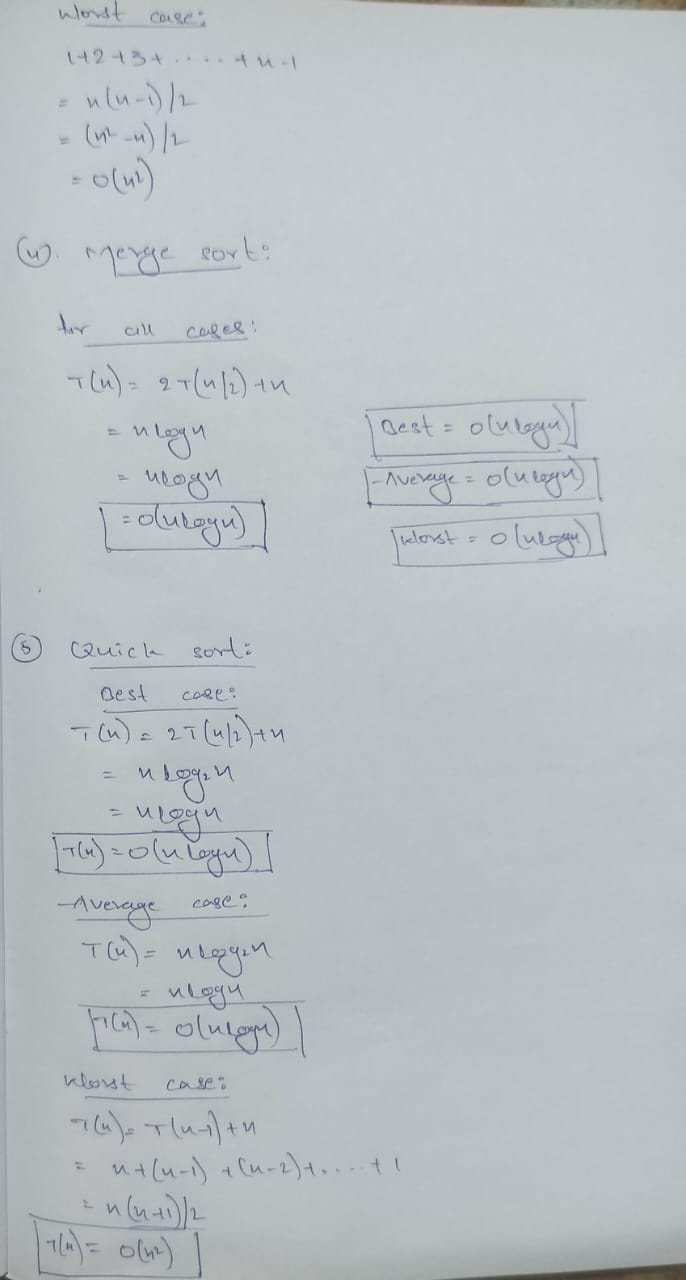 Worst case:
1+2+3+.....+n-1
= n(n-1)/2
= (n²-n)/2
= O(n²)
(4). Merge sort:
for all cases:
T(n) = 2T(n/2)+n
= n logn
= nlogn
= O(nlogn)
Best = O(nlogn)
Average = O(nlogn)
Worst = O(nlogn)
(5) Quick sort:
Best case:
T(n) = 2T(n/2)+n
= n log₂n
= nlogn
T(n) = O(n logn)
Average case:
T(n) = n log₂n
= nlogn
T(n) = O(nlogn)
Worst case:
T(n) = T(n-1)+n
= n+(n-1)+(n-2)+.....+1
= n(n+1)/2
T(n) = O(n²)